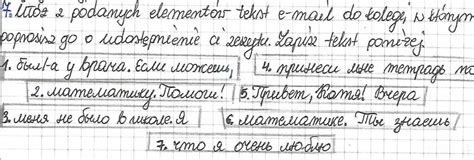 7. Ułóż z podanych elementów tekst e-mail do kolegi, w którym
poprosisz go o udostępnienie ci zeszytu. Zapisz tekst poniżej.
1. был/-а у врача. Если можешь,
4. принеси мне тетрадь по
2. математику. Помоги!
5. Привет, Катя! Вчера
3. меня не было в школе. Я
6. математике. Ты знаешь
7. что я очень люблю